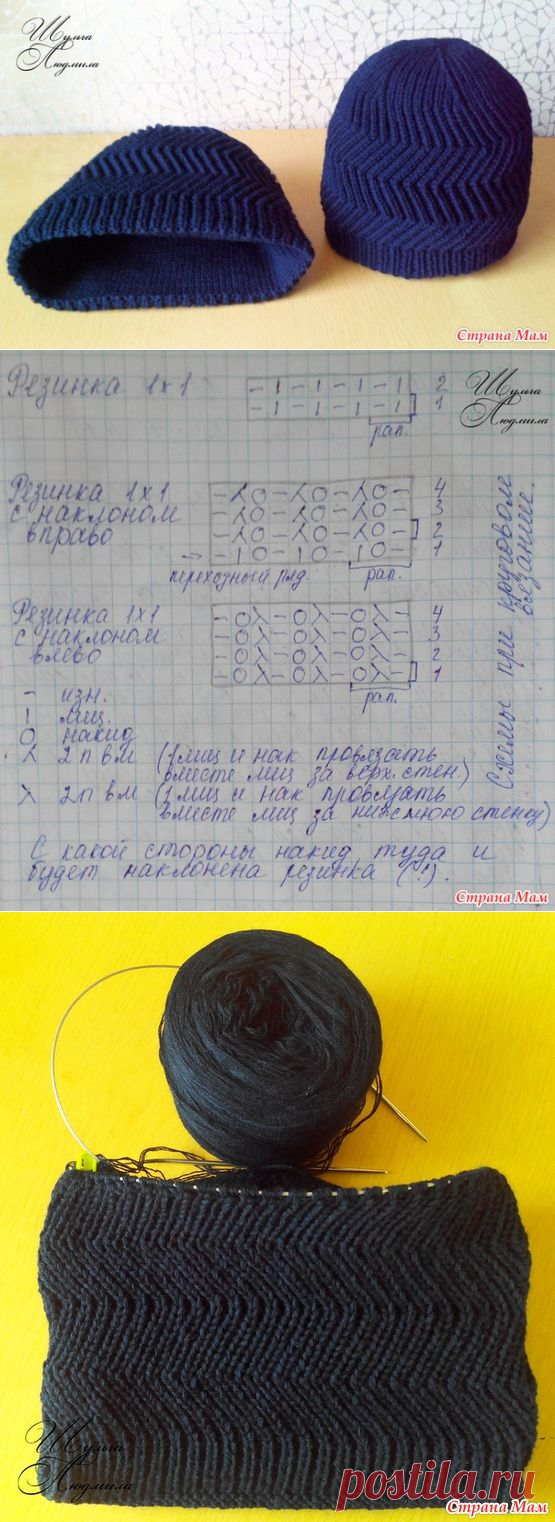 Шульга
Людмила
Страна Мам
Резинка 1х1
- 1 - 1 - 1 - 1 2
- 1 - 1 - 1 - 1 1
рап.
Шульга
Людмила
Резинка 1х1
с наклоном
вправо
- ⅄ О - ⅄ О - ⅄ О - 4
- ⅄ О - ⅄ О - ⅄ О - 3
- ⅄ О - ⅄ О - ⅄ О - 2
- 1 О - 1 О - 1 О - 1
→
переходный ряд.
рап.
Резинка 1х1
с наклоном
влево
- О λ - О λ - О λ - 4
- О λ - О λ - О λ - 3
- О λ - О λ - О λ - 2
- О λ - О λ - О λ - 1
рап.
Схемы при круговом
вязании.
- изн.
1 лиц.
О накид
⅄ 2 п вм (1 лиц и нак провязать
вместе лиц за верх. стен.)
λ 2 п вм (1 лиц и нак провязать
вместе лиц за нижнюю стенку)
С какой стороны накид туда и
будет наклонена резинка (!).
Страна Мам
Шульга
Людмила
postila.ru
Страна Мам